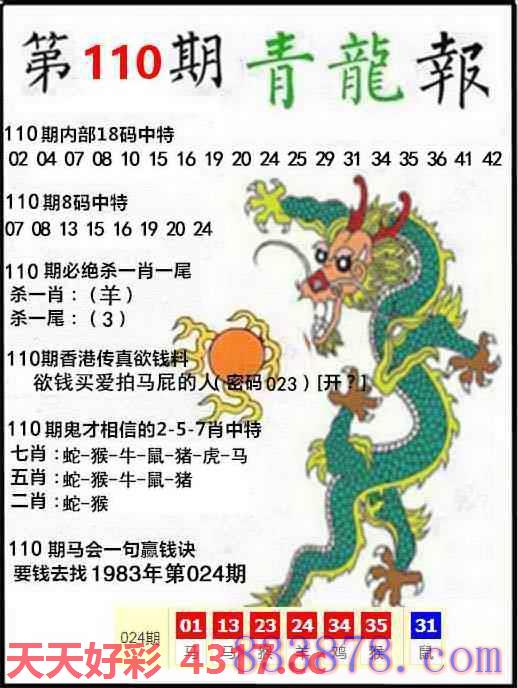 第110期 青龍報
110期内部18码中特
02 04 07 08 10 15 16 19 20 24 25 29 31 34 35 36 41 42
110期8码中特
07 08 13 15 16 19 20 24
110期必绝杀一肖一尾
杀一肖：（羊）
杀一尾：（3）
110期香港传真欲钱料
欲钱买爱拍马屁的人(密码023)[开？]
110期鬼才相信的2-5-7肖中特
七肖：蛇-猴-牛-鼠-猪-虎-马
五肖：蛇-猴-牛-鼠-猪
二肖：蛇-猴
110期马会一句赢钱诀
要钱去找1983年第024期
024期 01 13 23 24 34 35 31
马 马 猴 羊 鸡 猴 鼠
天天好彩 4317.cc
853878.com